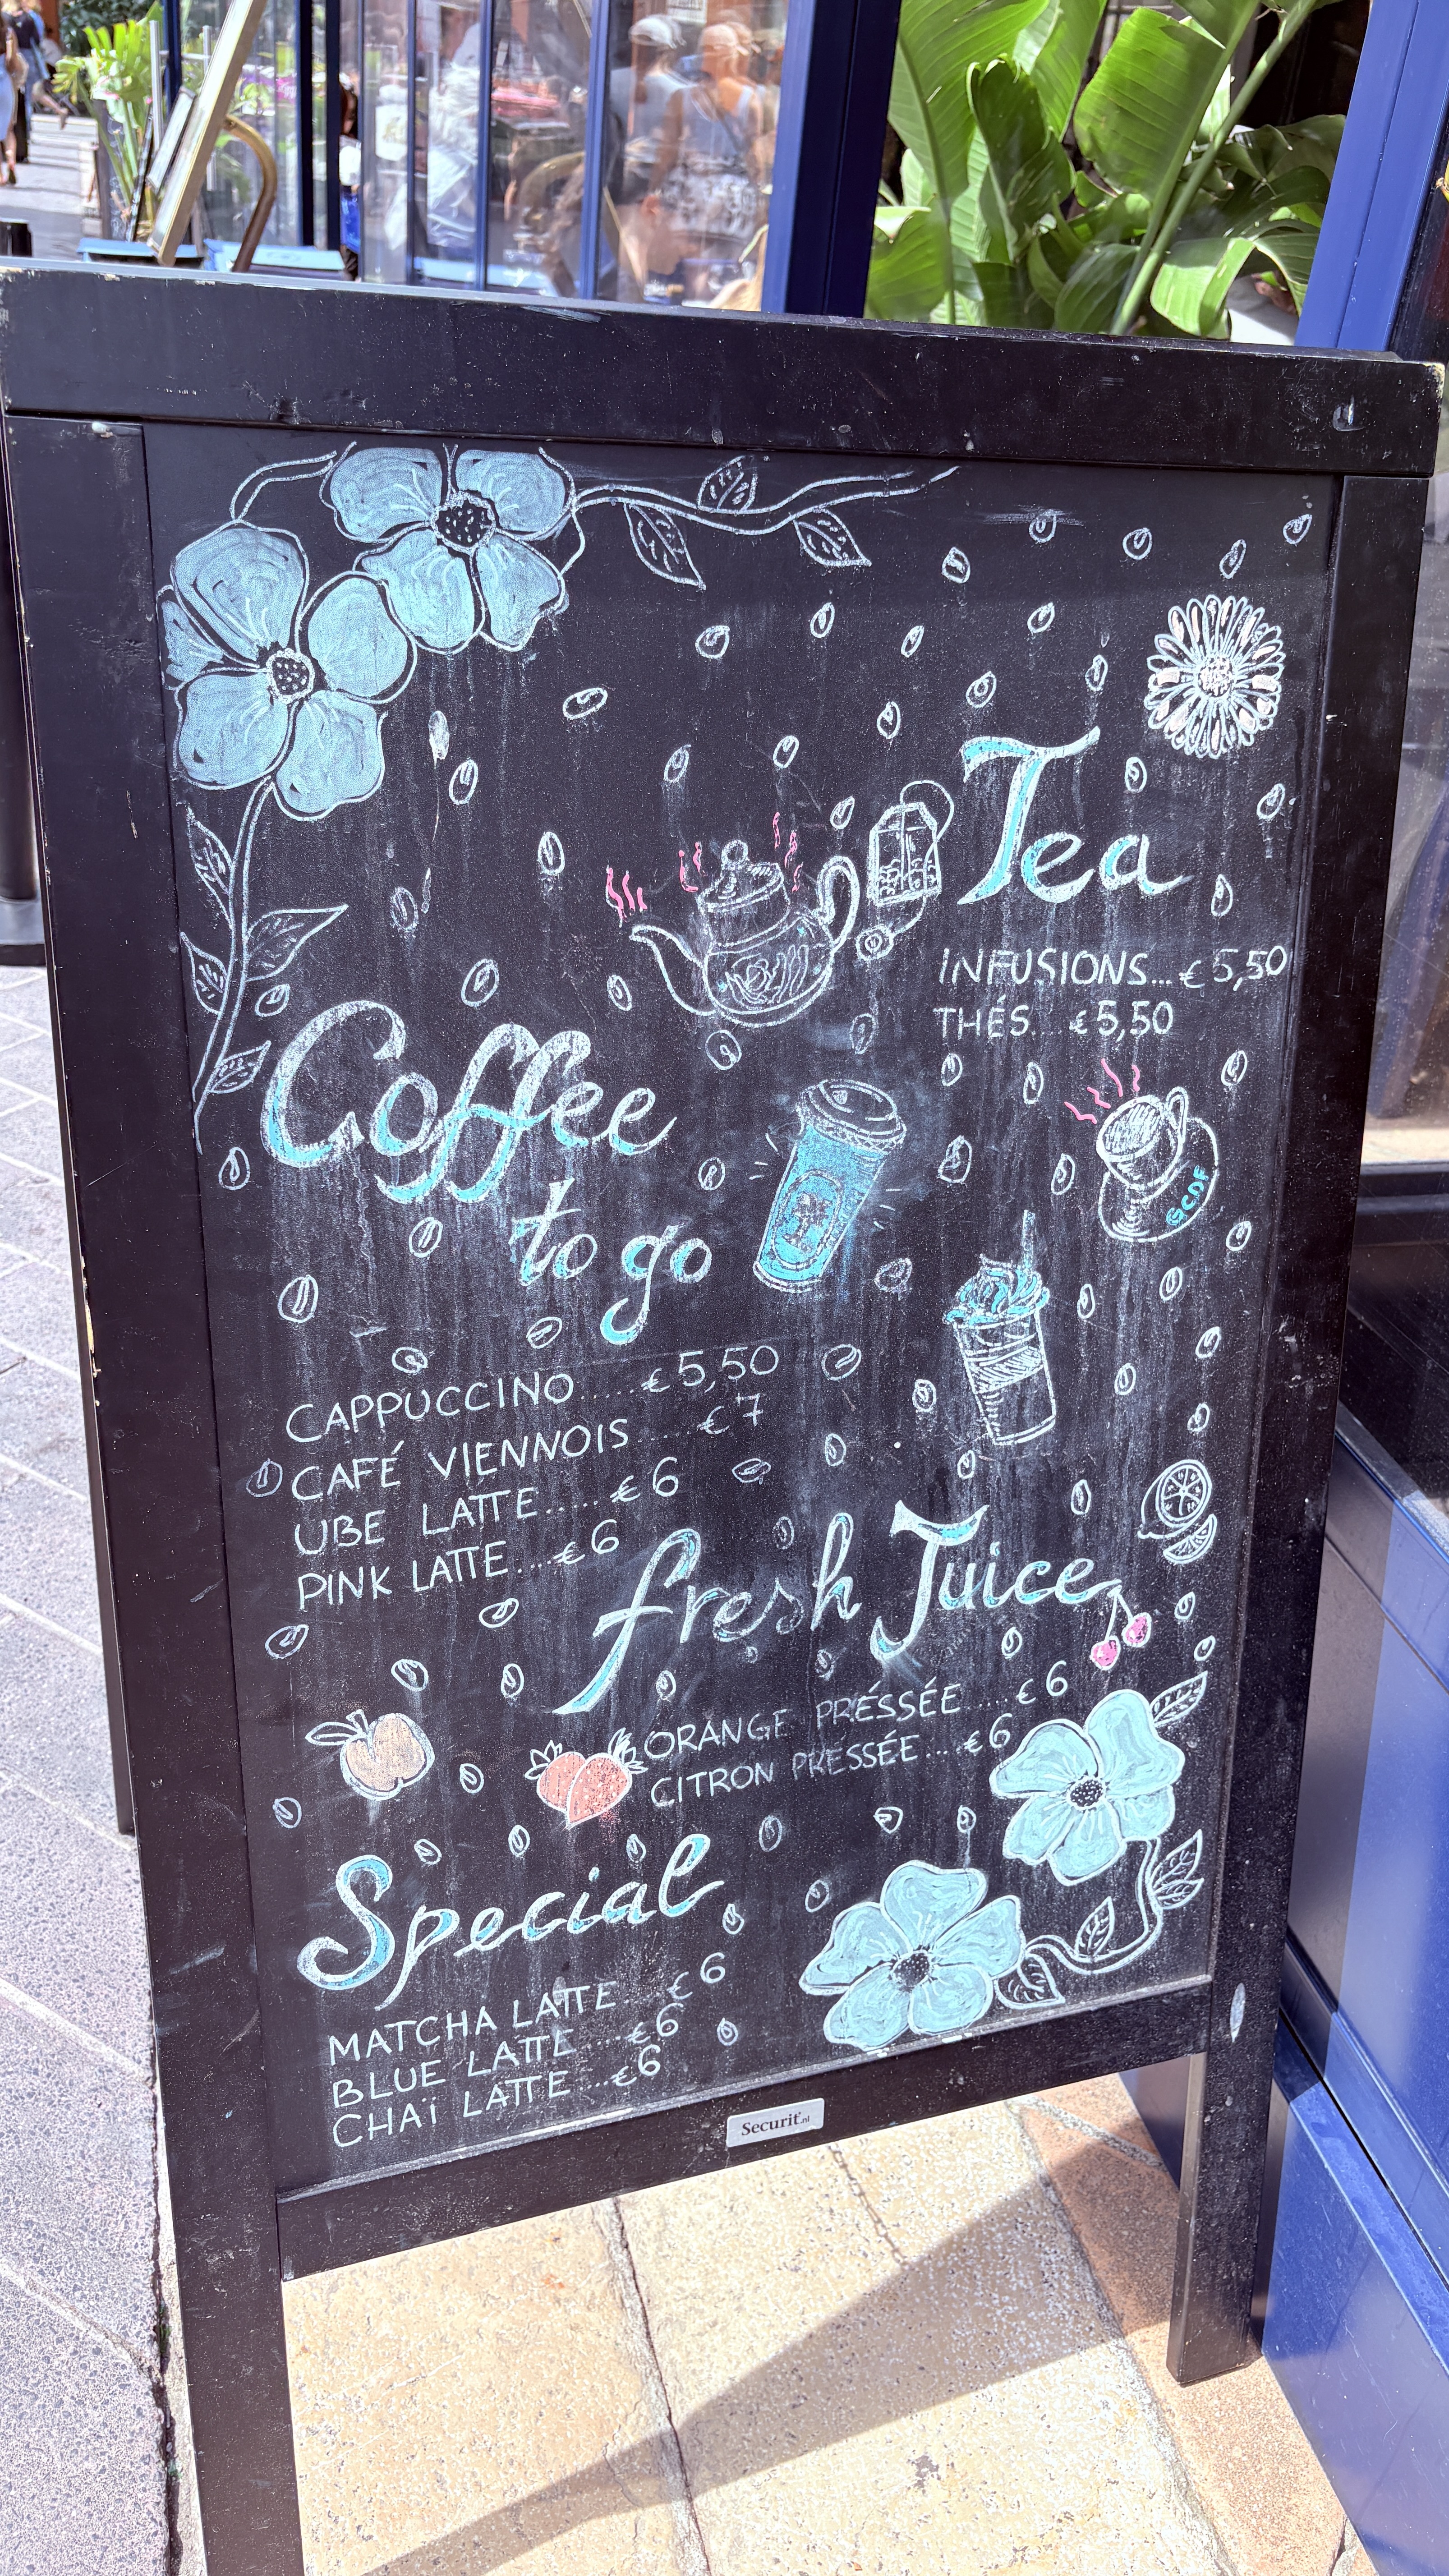 Tea
INFUSIONS...€5,50
THÉS...€5,50
Coffee
to go
GCDF
CAPPUCCINO.....€5,50
CAFÉ VIENNOIS.....€7
UBE LATTE.....€6
PINK LATTE....€6
fresh Juice
ORANGE PRÉSSÉE....€6
CITRON PRESSÉE...€6
Special
MATCHA LATTE...€6
BLUE LATTE....€6
CHAÏ LATTE...€6
Securit.nl